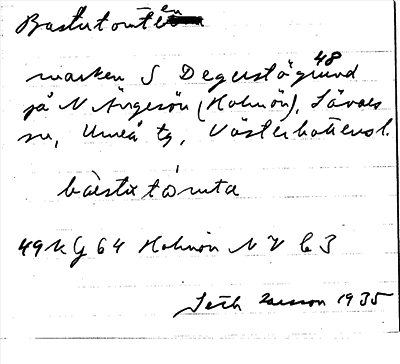 Bastutomten
marken S Degerstögrund 48
på N Ängesön (Holmön), Sävars
sn, Umeå tg, Västerbottens l.
bàstutòmta
49 Kg 64 Holmön NV b 3
Seth 1935